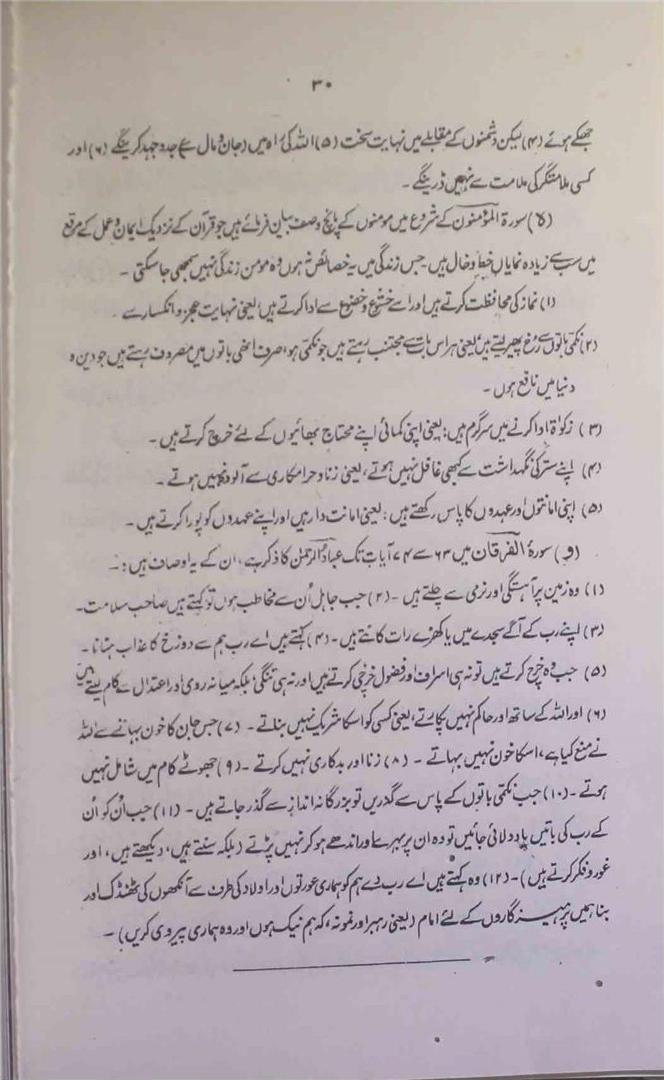 ۳۰
جھکے ہوئے (۴) لیکن دشمنوں کے مقابلے میں نہایت سخت (۵) اللہ کی راہ میں (جان و مال سے) جدوجہد کرینگے (۶) اور
کسی ملامتگر کی ملامت سے نہیں ڈرینگے ۔
(لا) سورۃ المؤمنون کے شروع میں مومنوں کے پانچ وصف بیان فرمائے ہیں جو قرآن کے نزدیک ایمان و عمل کے مرقع
میں سب سے زیادہ نمایاں خط و خال ہیں. جس زندگی میں یہ خصائص نہ ہوں وہ مومن زندگی نہیں سمجھی جا سکتی ۔
(۱) نماز کی محافظت کرتے ہیں اور اسے خشوع و خضوع سے ادا کرتے ہیں، یعنی نہایت عجز و انکسار سے
(۲) نکمی باتوں سے رُخ پھیر لیتے ہیں، یعنی ہر اس بات سے مجتنب رہتے ہیں جو نکمی ہو، صرف انھی باتوں میں مصروف رہتے ہیں جو دین و
دنیا میں نافع ہوں ۔
(۳) زکوٰۃ ادا کرنے میں سرگرم ہیں: یعنی اپنی کمائی اپنے محتاج بھائیوں کے لئے خرچ کرتے ہیں ۔
(۴) اپنے ستر کی نگہداشت سے کبھی غافل نہیں ہوتے، یعنی زنا و حرامکاری سے آلودہ نہیں ہوتے ۔
(۵) اپنی امانتوں اور عہدوں کا پاس رکھتے ہیں: یعنی امانت دار ہیں اور اپنے عہدوں کو پورا کرتے ہیں ۔
(و) سورۃ الفرقان میں ۶۳ سے ۷۴ آیات تک عباد الرحمٰن کا ذکر ہے، ان کے یہ اوصاف ہیں: ۔
(۱) وہ زمین پر آہستگی اور نرمی سے چلتے ہیں ۔ (۲) جب جاہل اُن سے مخاطب ہوں تو کہتے ہیں صاحب سلامت ۔
(۳) اپنے رب کے آگے سجدے میں یا کھڑے رات کاٹتے ہیں ۔ (۴) کہتے ہیں اے رب ہم سے دوزخ کا عذاب ہٹانا ۔
(۵) جب وہ خرچ کرتے ہیں تو نہ ہی اسراف اور فضول خرچی کرتے ہیں اور نہ ہی تنگی، بلکہ میانہ روی اور اعتدال سے کام لیتے ہیں
(۶) اور اللہ کے ساتھ اور حاکم نہیں پکارتے، یعنی کسی کو اسکا شریک نہیں بناتے ۔ (۷) جس جان کا خون بہانے سے اللہ
نے منع کیا ہے، اسکا خون نہیں بہاتے ۔ (۸) زنا اور بدکاری نہیں کرتے ۔ (۹) جھوٹے کام میں شامل نہیں
ہوتے ۔ (۱۰) جب نکمی باتوں کے پاس سے گذریں تو بزرگانہ انداز سے گذر جاتے ہیں ۔ (۱۱) جب اُن کو اُن
کے رب کی باتیں یاد دلائی جائیں تو وہ ان پر بہرے اور اندھے ہو کر نہیں پڑتے (بلکہ سنتے ہیں، دیکھتے ہیں، اور
غور و فکر کرتے ہیں) ۔ (۱۲) وہ کہتے ہیں اے رب دے ہم کو ہماری عورتوں اور اولاد کی طرف سے آنکھوں کی ٹھنڈک اور
بنا ہمیں پرہیزگاروں کے لئے امام (یعنی رہبر اور نمونہ، کہ ہم نیک ہوں اور وہ ہماری پیروی کریں) ۔